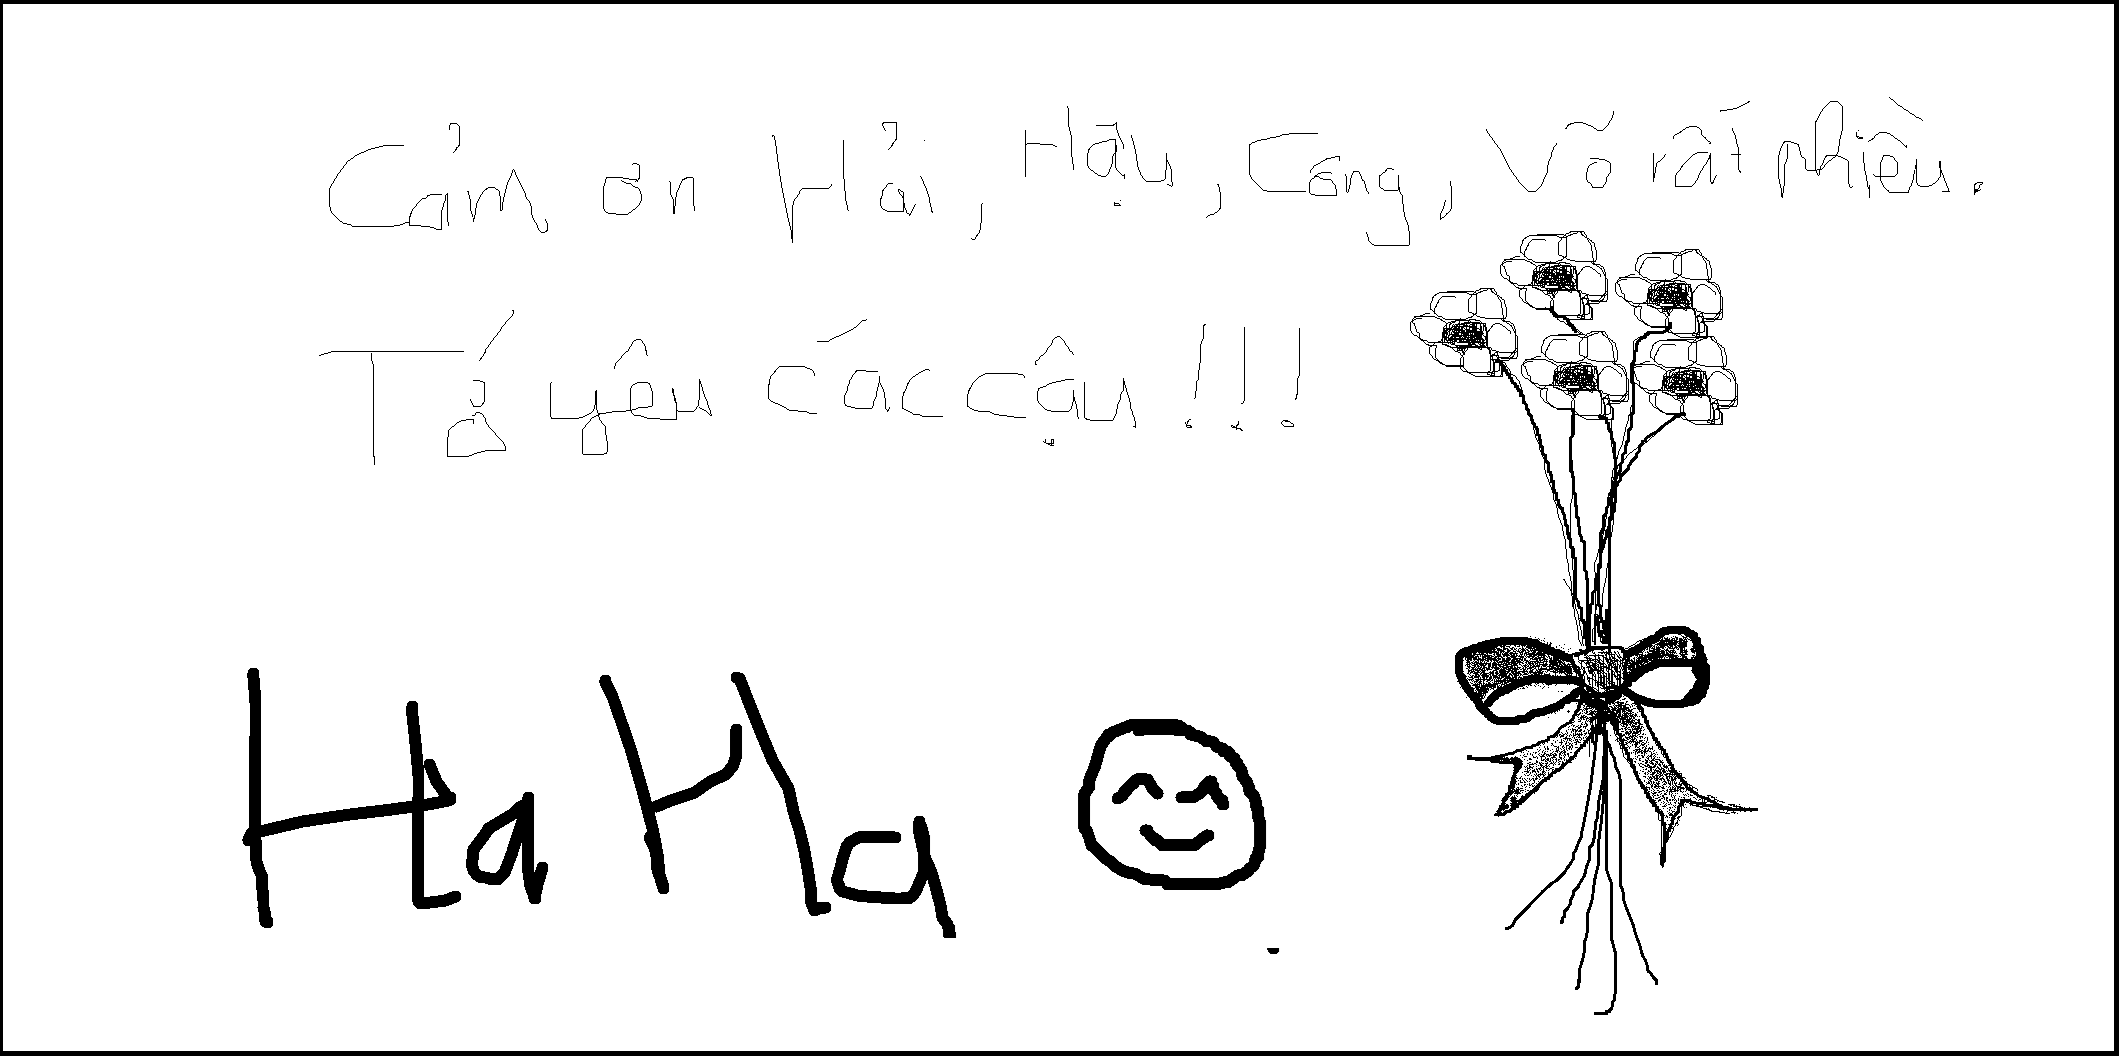 Cảm ơn Hải, Hậu, Công, Võ rất nhiều.
Tớ yêu các cậu!!!
Ha Ha